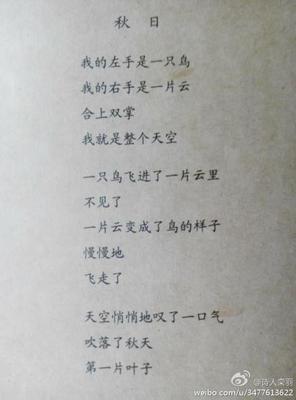 秋 日
我的左手是一只鸟
我的右手是一片云
合上双掌
我就是整个天空
一只鸟飞进了一片云里
不见了
一片云变成了鸟的样子
慢慢地
飞走了
天空悄悄地叹了一口气
吹落了秋天
第一片叶子
@诗人栾羽
weibo.com/u/3477613622